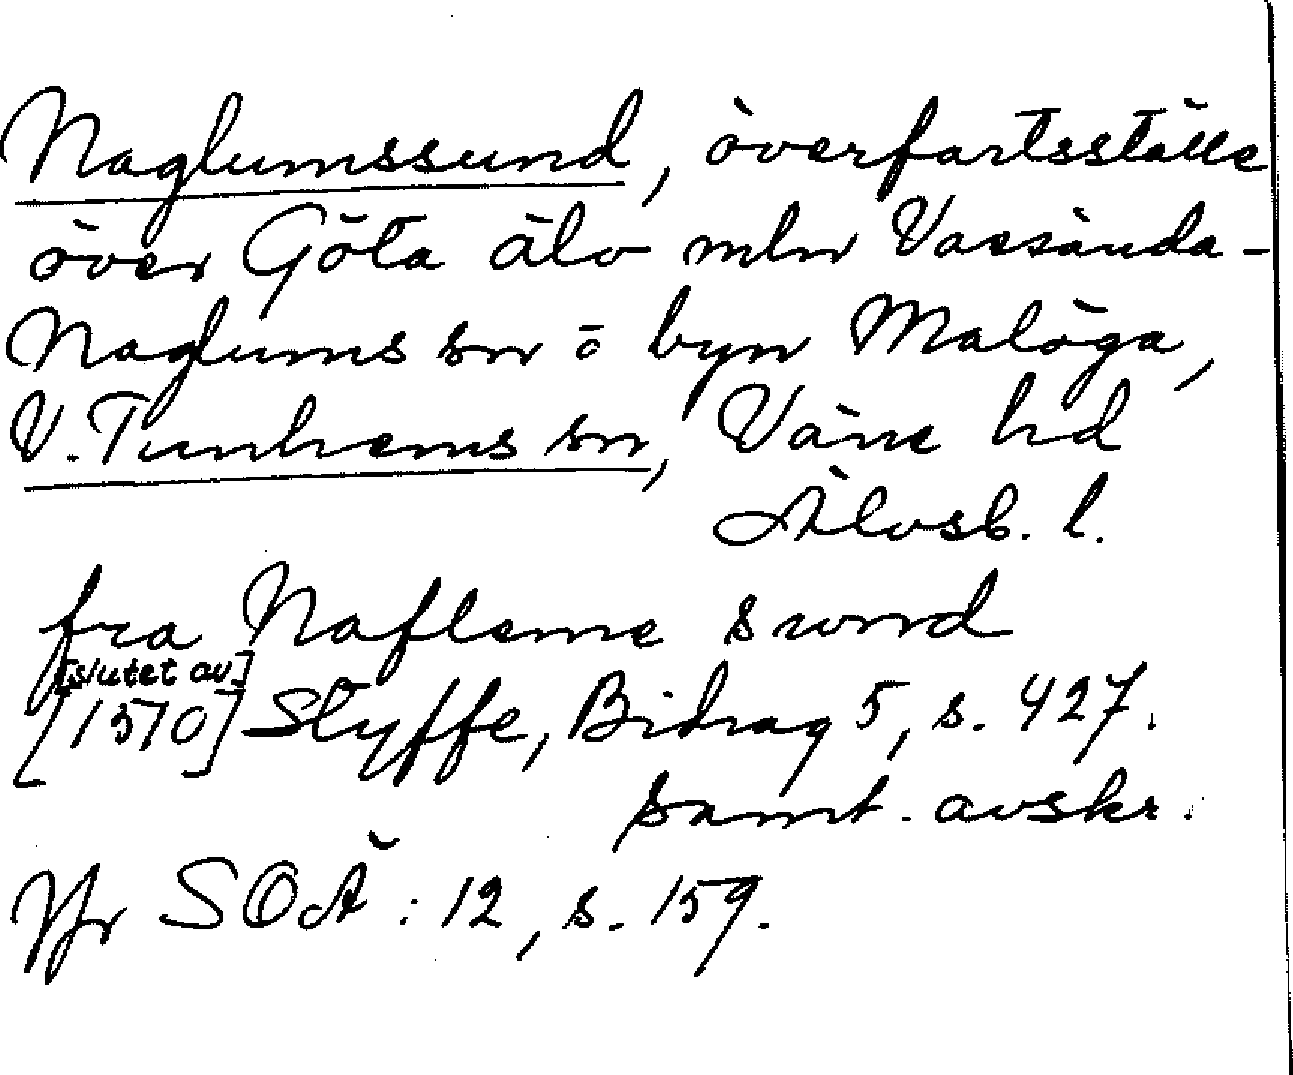 Naglumssund, överfartsställe
över Göta älv mln Vassända-
Naglums sn o byn Malöga,
V. Tunhems sn, Väne hd
Älvsb. l.
fra Nafleme swnd
[slutet av]
[1510] Styffe, Bidrag 5, s. 427.
samt. avskr.
Jfr SOÄ: 12, s. 159.